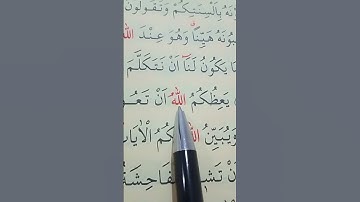 ونَهُ بِأَلْسِنَتِكُمْ وَتَقُولُونَ
سَبُونَهُ هَيِّنًا وَهُوَ عِنْدَ اللّٰهِ
مَا يَكُونُ لَنَٓا اَنْ نَتَكَلَّمَ
يَعِظُكُمُ اللّٰهُ اَنْ تَعُو
وَيُبَيِّنُ اللّٰهُ كُمُ الْاٰيَاتِ
اَنْ تَش فَاحِشَةُ